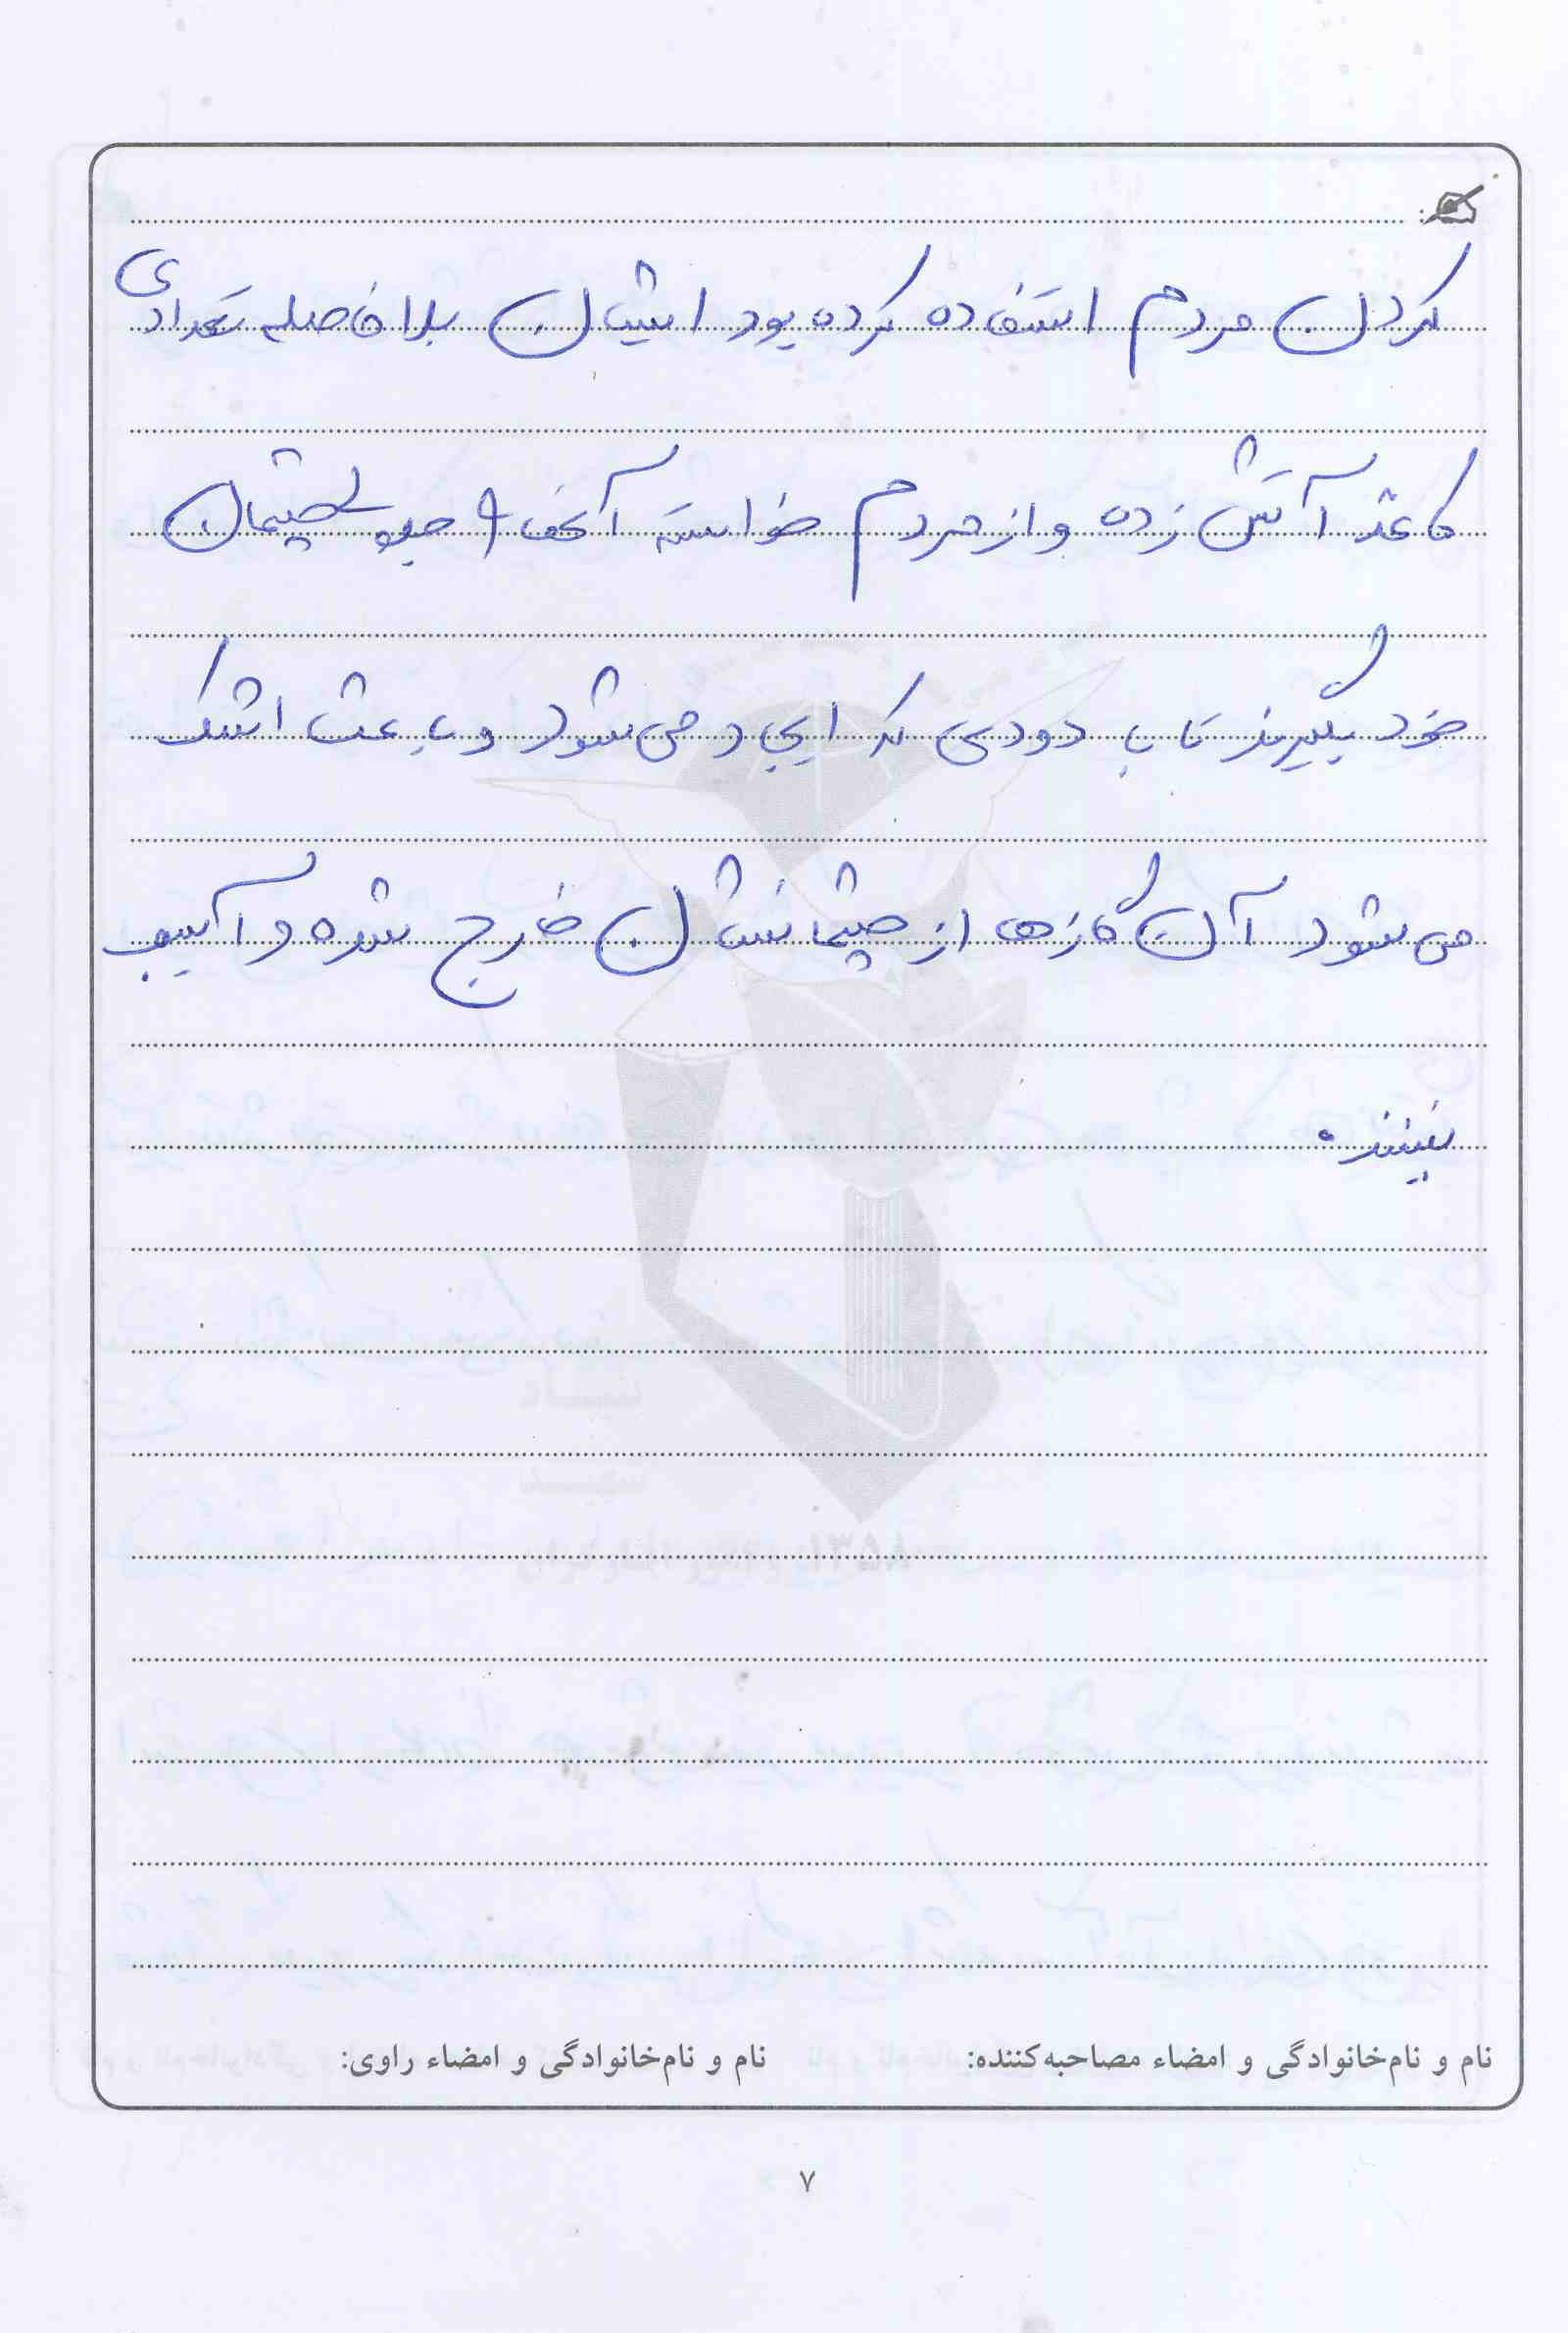 کردن مردم استفاده کرده بود ایشان بلافاصله تعدادی
کاغذ آتش زده و از مردم خواسته آنها را جلوی چشمان
خود بگیرند تا با دودی که ایجاد می‌شود و باعث اشک
می‌شود آن گازها از چشمانشان خارج شده و آسیب
نبینند.
نام و نام‌خانوادگی و امضاء مصاحبه‌کننده: نام و نام‌خانوادگی و امضاء راوی:
۷